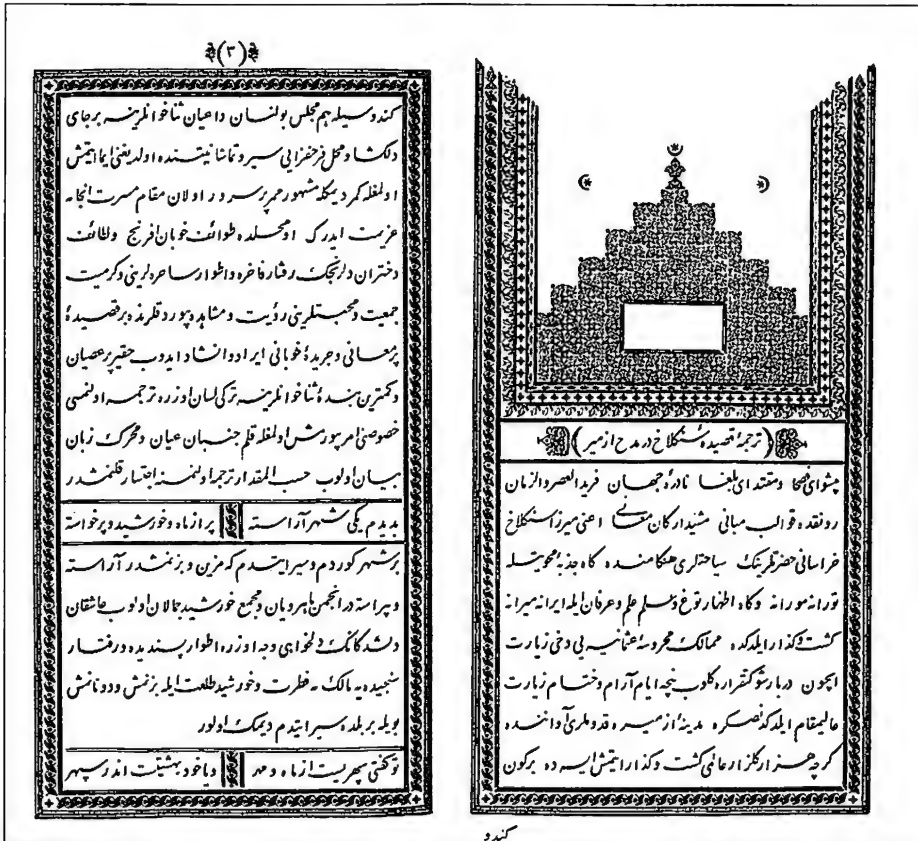 (ترجمهٔ قصیدهٔ سنکلاخ در مدح ازمیر)
پیشوای فصحا ومقتدای بلغا نادرهٔ جهان فرید العصر والزمان
رونقده قوالب مبانی مشید ارکان معانی اعنی میرزا سنکلاخ
خراسانی حضرتلرینک سیاحتلری هنکامنده کاه جذبهٔ محویتله
تورانه مورانه وکاه اظهار توغ وعلم علم وعرفان ایله ایرانه میرانه
کشت وکذار ایلدکده ممالک محروسهٔ عثمانیه یی دخی زیارت
ایچون دربار شوکتقراره کلوب نیچه ایام آرام وختام زیارت
عالیمقام ایلدکدنصکره مدینهٔ ازمیره قدوملری آواننده
کرچه هزار کلزار عالمی کشت وکذار ایتمش ایسه ده برکون
کندو
(۳)
کندوسیله هم مجلس بولنان داعیان ثناخوانلرینه بر جای
دلکشا ومحل فرحفزایی سیر وتماشا نیتنده اولدیغنی ایما ایتمش
اولمغله کمر دیمکله مشهور ممر پرسرور اولان مقام مسرت انجا۔
عزیمت ایدرک اومحلده طوائف خوبان افرنج ولطائف
دختران دلرنجک رفتار فاخره واطوار ساحره لرینی وکرمیت
جمعیت ومحبتلرینی رؤیت ومشاهده بیوردقلرنده بر قصیدهٔ
پرمعانی وجریدهٔ خوبانی ایراد وانشاد ایدوب حقیر پرعصیان
وکمترین بندهٔ ثناخوانلرینه ترکی لسان اوزره ترجمه اولنمسی
خصوصنی امر بیورمش اولمغله قلم جنبان عیان ومحرک زبان
بیان اولوب حسب المقدار ترجمه اولنمسنه اجتسار قلنمشدر
بدیدم یکی شهر آراسته پر از ماه وخورشید وپرخواسته
بر شهر کوردم وسیر ایتدم که مزین وبزنمشدر آراسته
وپیراسته در انجمن ماهرویان ومجمع خورشید جمالان اولوب عاشقان
دلشدکانک دلخواهی وجه اوزره اطوار پسندیده ورفتار
سنجیده یه مالک ۔ فطرت وخورشید طلعت ایله بزنمش ودونانمش
بویله بر بلده سیر ایتدم دیمک اولور
توکفتی سپهریست از ماه ومهر ویا خود بهشتیست اندر سپهر